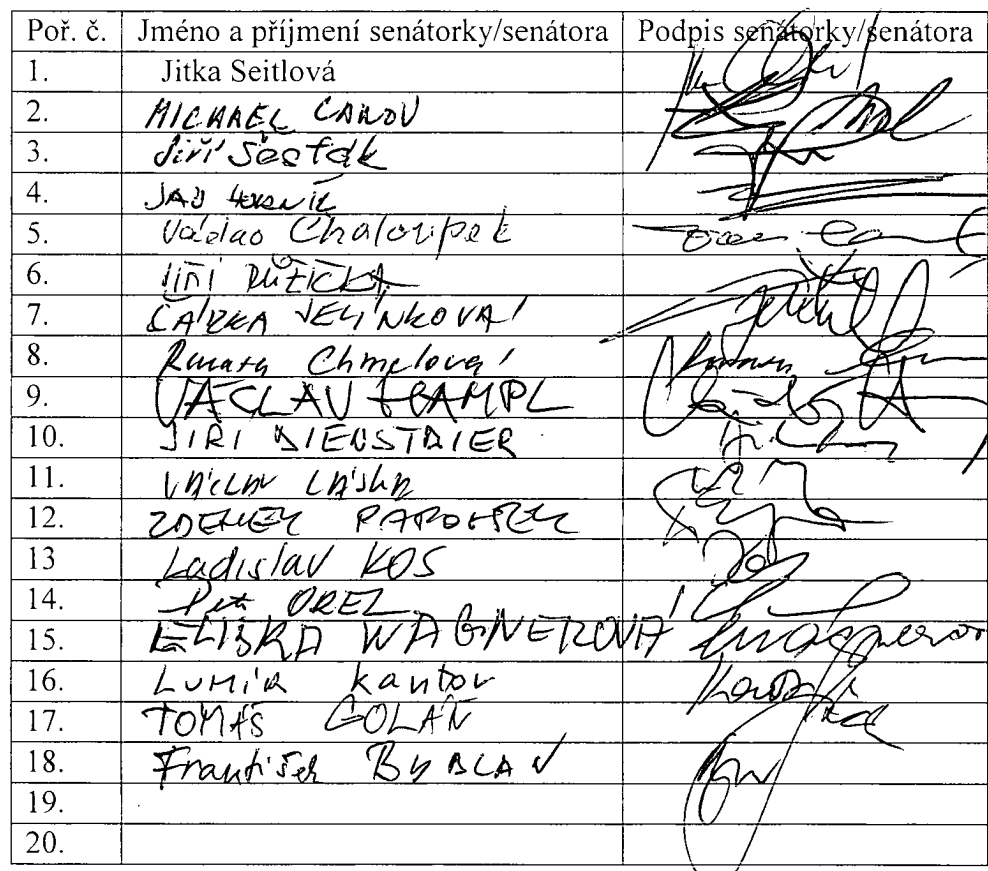 Poř. č. Jméno a příjmení senátorky/senátora Podpis senátorky/senátora
1. Jitka Seitlová
2. MICHAEL CANOV
3. Jiří Šesták
4. JAN HORNÍK
5. Václav Chaloupek
6. JIŘÍ RŮŽIČKA
7. ŠÁRKA JELÍNKOVÁ
8. Renata Chmelová
9. VÁCLAV HAMPL
10. JIRI DIENSTBIER
11. VÁCLAV LÁSKA
12. ZDENEK PAPOUSEK
13 Ladislav KOS
14. Petr OREL
15. ELIŠKA WAGNEROVÁ
16. LUMÍR kantor
17. TOMÁŠ GOLÁŇ
18. František BUBLAN
19.
20.